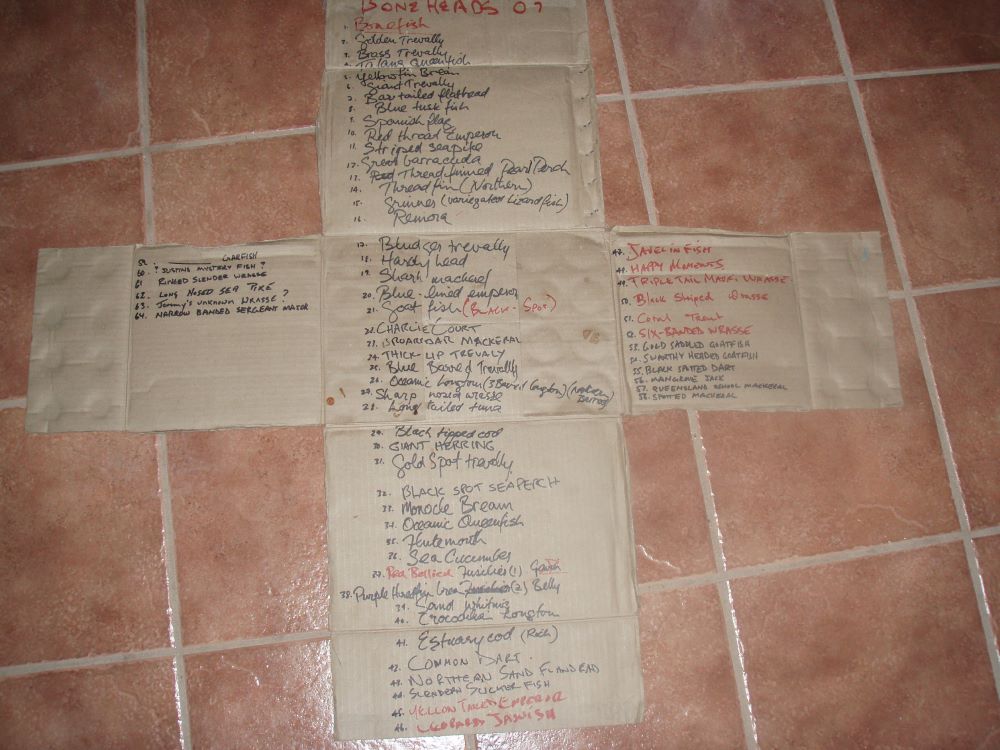 BONEHEADS 07
1. Bonefish
2. Golden Trevally
3. Brass Trevally
4. Queenfish
5. Yellowfin Bream
6. Giant Trevally
7. Bar tailed flathead
8. Blue tusk fish
9. Spanish flag
10. Red throat Emperor
11. Striped seapike
12. Great barracuda
13. Threadfinned Pearl Perch
14. Threadfin (Northern)
15. Grinner (variegated lizardfish)
16. Remora
17. Bludger trevally
18. Hardy head
19. Shark mackerel
20. Blue-lined emperor
21. Goat fish (BLACK-SPOT)
22. CHARLIE COURT
23. MACKERAL
24. THICK-LIP TREVALY
25. Blue Barred Trevally
26. Oceanic Longtom (3 Barred Longtom)
27. Sharp nosed wrasse
28. Long tailed tuna
29. Black tipped cod
30. GIANT HERRING
31. Gold Spot trevally
32. BLACK SPOT SEAPERCH
33. Monocle Bream
34. Oceanic Queenfish
35. Flutemouth
36. Sea Cucumber
37. Red Bellied Fusilier (1)
38. Purple (2) Belly
39. Sand whiting
40. Crocodilian Longtom
41. Estuary cod (Rock)
42. COMMON DART
43. NORTHERN SAND FLATHEAD
44. SLENDER SUCKER FISH
45. YELLOW TAILED EMPEROR
46. LEOPARD
47. JAVELIN FISH
48. HAPPY MOMENTS
49. TRIPLETAIL MAORI WRASSE
50. Black Striped Wrasse
51. Coral Trout
52. SIX-BANDED WRASSE
53. GOLD SADDLED GOATFISH
54. SWARTHY HEADED GOATFISH
55. BLACK SPOTTED DART
56. MANGROVE JACK
57. QUEENSLAND SCHOOL MACKERAL
58. SPOTTED MACKERAL
59. GARFISH
60. ? JUSTINS MYSTERY FISH ?
61 RINGED SLENDER WRASSE
62. LONG NOSED SEA PIKE
63. Jeremy's UNKNOWN WRASSE ?
64. NARROW BANDED SERGEANT MAJOR